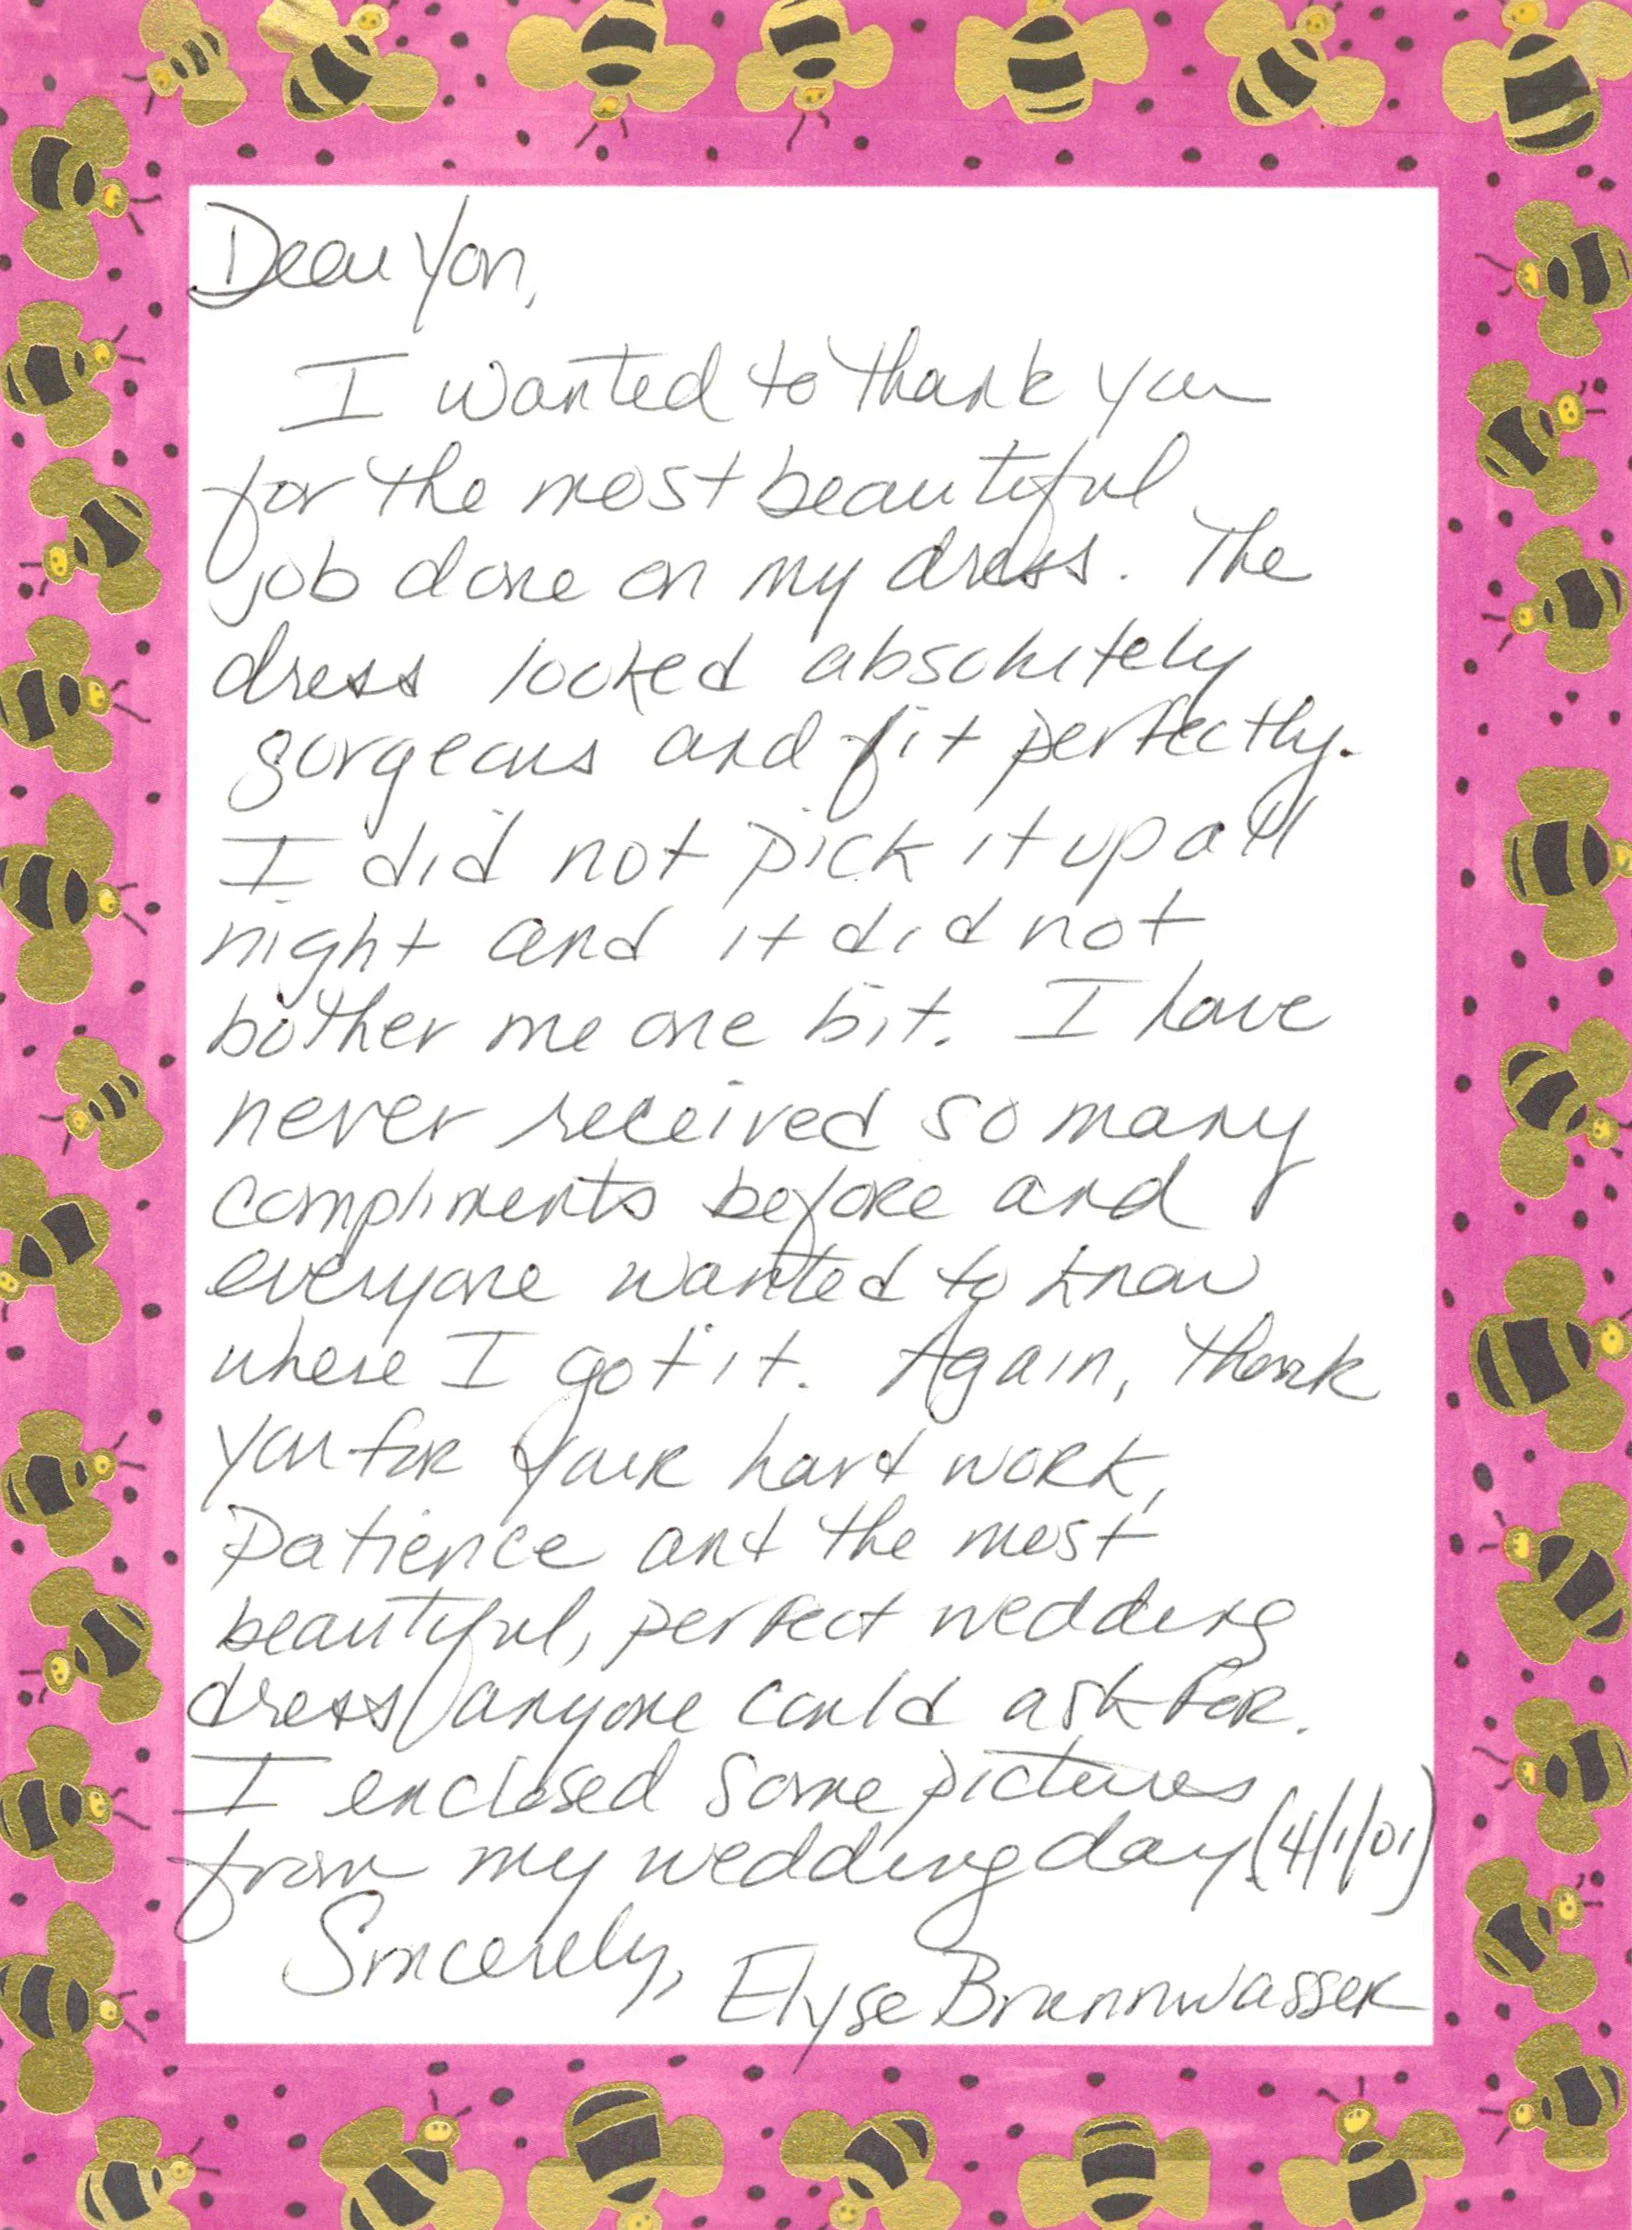 Dear Yon,
I wanted to thank you
for the most beautiful
job done on my dress. The
dress looked absolutely
gorgeous and fit perfectly.
I did not pick it up all
night and it did not
bother me one bit. I have
never received so many
compliments before and
everyone wanted to know
where I got it. Again, thank
you for your hard work,
Patience and the most
beautiful, perfect wedding
dress anyone could ask for.
I enclosed some pictures
from my wedding day (4/1/01)
Sincerely, Elyse Brannwasser